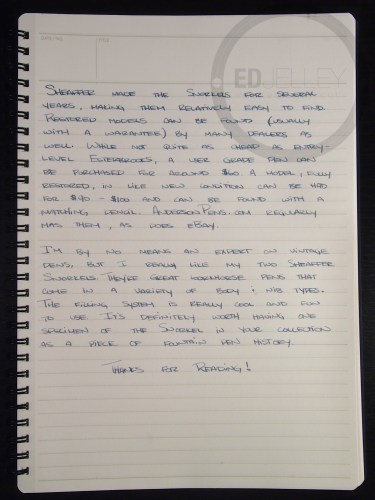 ED JELLEY
SHEAFFER MADE THE SNORKELS FOR SEVERAL
YEARS, MAKING THEM RELATIVELY EASY TO FIND.
RESTORED MODELS CAN BE FOUND (USUALLY
WITH A WARANTEE) BY MANY DEALERS AS
WELL. WHILE NOT QUITE AS CHEAP AS ENTRY-
LEVEL ESTERBROOKS, A USER GRADE PEN CAN
BE PURCHASED FOR AROUND $60. A MODEL, FULLY
RESTORED, IN LIKE NEW CONDITION CAN BE HAD
FOR $90 - $100 AND CAN BE FOUND WITH A
MATCHING PENCIL. ANDERSONPENS.COM REGULARLY
HAS THEM, AS DOES EBAY.
I'M BY NO MEANS AN EXPERT ON VINTAGE
PENS, BUT I REALLY LIKE MY TWO SHEAFFER
SNORKELS. THEY'RE GREAT WORKHORSE PENS THAT
COME IN A VARIETY OF BODY + NIB TYPES.
THE FILLING SYSTEM IS REALLY COOL AND FUN
TO USE. IT'S DEFINITELY WORTH HAVING ONE
SPECIMEN OF THE SNORKEL IN YOUR COLLECTION
AS A PIECE OF FOUNTAIN PEN HISTORY.
THANKS FOR READING!